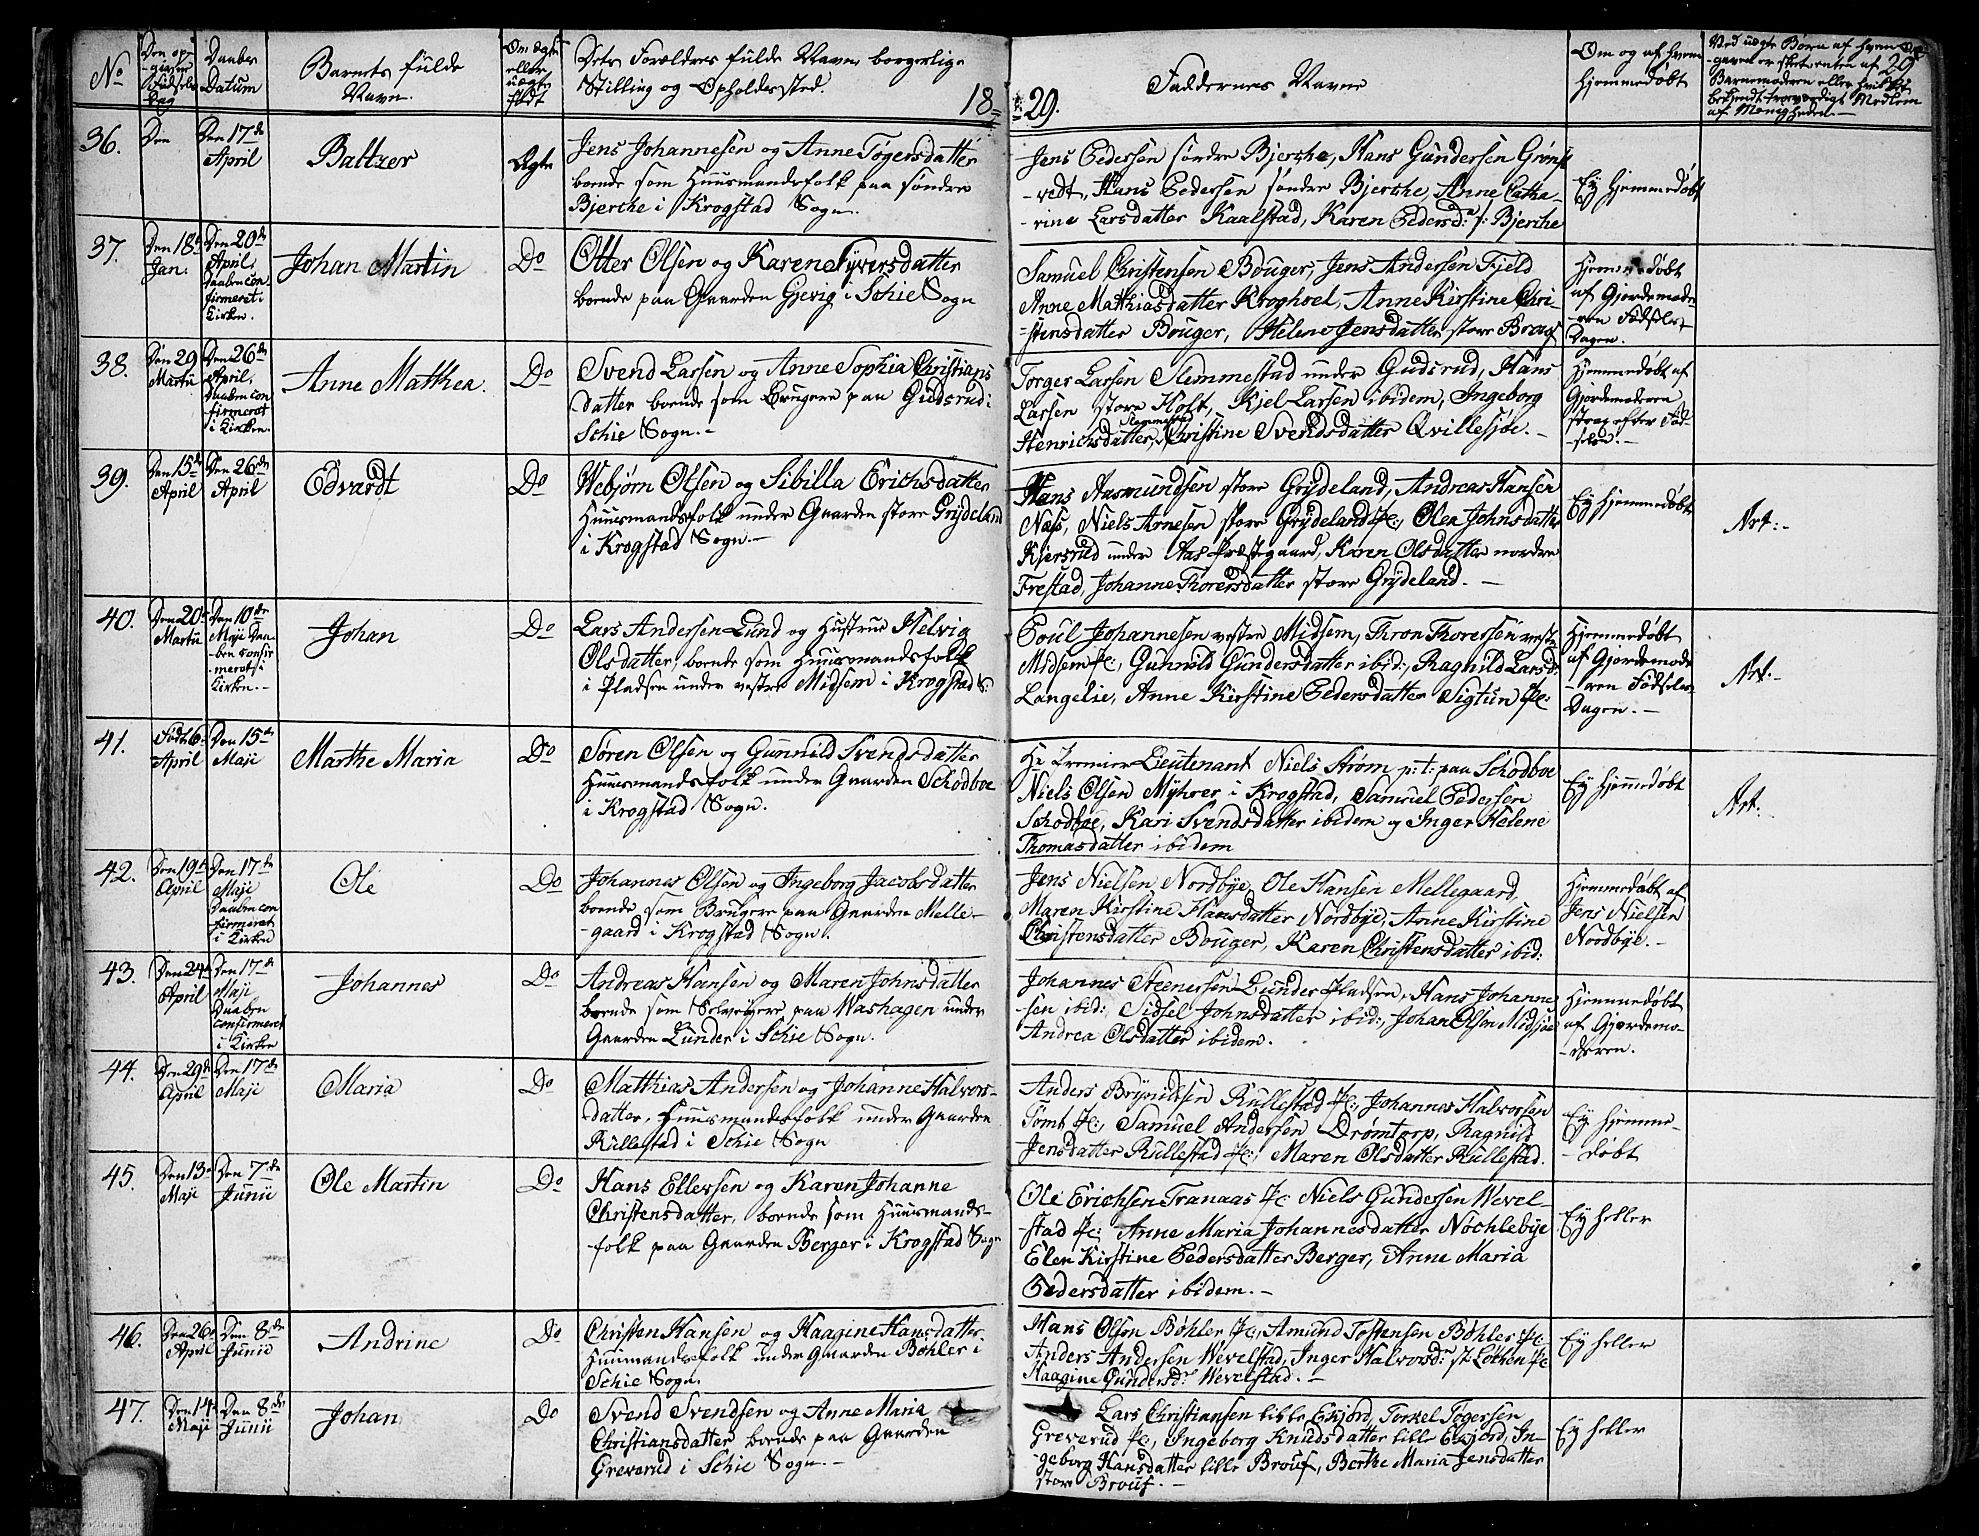 No
Den op-
givne
Fødsels
Dag
Daabs
Datum
Barnets fulde
Navn.
Om ægte
eller
uægte
født
Dets Forældres fulde Navne borgerlige
Stilling og Opholdssted.
18=
=29.
Faddernes Navne
Om og af hvem
hjemmedøbt
Ved uægte Børn af hvem Op-
gaven er skeet enten af
Barnemoderen eller hvilket
bekjendt troeværdigt Medlem
af Menigheden.
29
36.
Den
Den 17de
April
Baltzer
Ægte
Jens Johannesen og Anne Tøgersdatter
boende som Huusmandsfolk paa søndre
Bjerche i Krogstad Sogn.
Jens Pedersen søndre Bjerche, Hans Gundersen Grøns-
-vedt, Hans Pedersen søndre Bjerche, Anne Catha-
-rine Larsdatter Kaalstad, Karen Pedersd: s: Bjerche
Ey hjemmedøbt
37.
Den 18
Jan.
Den 20de
April,
Daaben con-
firmeret i
Kirken.
Johan Martin
Do
Otter Olsen og Karen Syversdatter
boende paa Gaarden Gjevig i Schie Sogn
Samuel Christensen Bouger, Jens Andersen Fjeld
Anne Mathiasdatter Kroghoel, Anne Kirstine Chri
-stensdatter Bouger, Helene Jensdatter store Brouf
Hjemmedøbt
af Gjordemode
-ren Fødsels-
Dagen.
38.
Den 29
Martii
Den 26de
April,
Daaben con
firmeret
i Kirken.
Anne Mathea.
Do
Svend Larsen og Anne Sophia Christians
datter boende som Brugere paa Gudsrud i
Schie Sogn.-
Torger Larsen Slemmestad under Gudsrud, Hans
Larsen store Holt, Kjel Larsen ibidem, Ingeborg
Henrichsdatter Slemmestad, Christine Svendsdatter Qvillesjøe.-
Hjemmedøbt af
Gjordemoderen
strax efter Fød-
selen.-
39.
Den 15de
April
Den 26de
April
Edvardt
Do
Webjørn Olsen og Sibilla Erichsdatter
Huusmandsfolk under Gaarden store Grydeland
i Krogstad Sogn.-
Hans Aasmundsen store Grydeland, Andreas Hansen
Næss, Niels Arnesen store Grydeland, Olea Johnsdatter
Kjersrud under Aas Præstegaard, Karen Olsdatter nordre
Frestad, Johanne Thorersdatter store Grydeland.-
Ey hjemmedøbt
Art:-
40.
Den 20
Martii
Den 10de
Maji Daa-
ben confir
-meret i
Kirken.-
Johan
Do
Lars Andersen Lund og Hustrue Helvig
Olsdatter, boende som Huusmandsfolk
i Pladsen under vestre Midsem i Krogstad S:
Poul Johannesen vestre Midsem, Thron Thoresen vestr
Midsem, Gunnild Gundersdatter ibid:, Ragnild Larsd:
Langelie, Anne Kirstine Pedersdatter Sigtun
Hjemmedøbt
af Gjordemode
-ren Fødsels-
Dagen.-
Art:-
41.
Født 6
April
Den 15de
Maji
Marthe Maria
Do
Søren Olsen og Gunnild Svendsdatter
Huusmandsfolk under Gaarden Schodboe
i Krogstad Sogn.
Hr Premier Lieutenant Niels Strøm p:t: paa Schodboe
Niels Olsen Myhrer i Krogstad, Samuel Pedersen
Schodboe, Kari Svendsdatter ibidem og Inger Helene
Thomasdatter ibidem
Ey hjemmedøbt
Art:-
42.
Den 19
April
Den 17de
Maji
Daaben con
firmeret
i Kirken
Ole
Do
Johannes Olsen og Ingeborg Jacobsdatter
boende som Brugere paa Gaarden Melle-
-gaard i Krogstad Sogn.
Jens Nielsen Nordbye, Ole Hansen Mellegaard,
Maren Kirstine Hansdatter Nordbye, Anne Kirstine
Christensdatter Bouger, Karen Christensdatter ibid:
Hjemmedøbt af
Jens Nielsen
Nordbye.-
43.
Den 24de
April
Den 17de
Maji
Daaben
confirmeret
i Kirken
Johannes
Do
Andreas Hansen og Maren Johnsdatter
boende som Selveyere paa Washagen under
Gaarden Lunder i Schie Sogn.
Johannes Steenersen Lunder Pladsen, Hans Johanne
-sen ibid:, Sidsel Johnsdatter ibid:, Johan Olsen Midsjøe
Andrea Olsdatter ibidem.
Hjemmedøbt
af Gjordemo-
-deren.
44.
Den 29de
April
Den 17de
Maji
Maria
Do
Mathias Andersen og Johanne Halvors-
-datter, Huusmandsfolk under Gaarden
Rullestad i Schie Sogn
Anders Brynildsen Rullestad, Johannes Halvorsen
Tømt, Samuel Andersen Drømtorp, Ragnild
Jensdatter Rullestad, Maren Olsdatter Rullestad.
Ey hjemme-
-døbt
45.
Den 13
Maji
Den 7de
Junii
Ole Martin
Do
Hans Ellersen og Karen Johanne
Christensdatter, boende som Huusmands-
-folk paa Gaarden Berger i Krogstad Sogn
Ole Erichsen Tranaas, Niels Gundersen Wevel-
-stad, Anne Maria Johannesdatter Nøchlebye
Elen Kirstine Pedersdatter Berger, Anne Maria
Pedersdatter ibidem.-
Ey heller
46.
Den 26
April
Den 8de
Junii
Andrine
Do
Christen Hansen og Haagine Hansdatter
Huusmandsfolk under Gaarden Bøhler i
Schie Sogn.
Hans Olsen Bøhler, Amund Tostensen Bøhler
Anders Andersen Wevelstad, Inger Halvorsd: st: Løken
Haagine Gundersd: Wevelstad.-
Ey heller
47.
Den 14
Maji
Den 8de
Junii
Johan
Do
Svend Svendsen og Anne Maria
Christiansdatter boende paa Gaarden
Greverud i Schie Sogn.-
Lars Christiansen lille Ekjord, Torkel Tøgersen
Greverud, Ingeborg Knudsdatter lille Ekjord, In-
-geborg Hansdatter lille Brouf, Berthe Maria Jensdatter
store Brouf.-
Ey heller